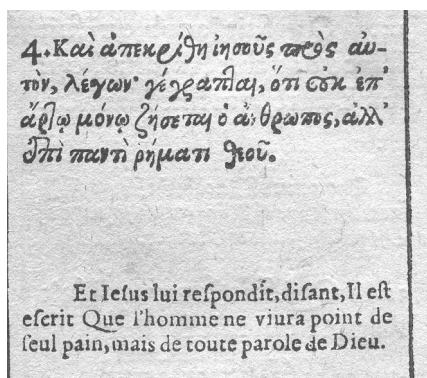 4. Καὶ ἀπεκρίθη ἰησοῦς πρὸς αὐ-
τὸν, λέγων· γέγραπται, ὅτι οὐκ ἐπ'
ἄρτῳ μόνῳ ζήσεται ὁ ἄνθρωπος, ἀλλ'
ἐπὶ παντὶ ῥήματι θεοῦ.
Et Iesus lui respondit, disant, Il est
escrit Que l'homme ne viura point de
seul pain, mais de toute parole de Dieu.